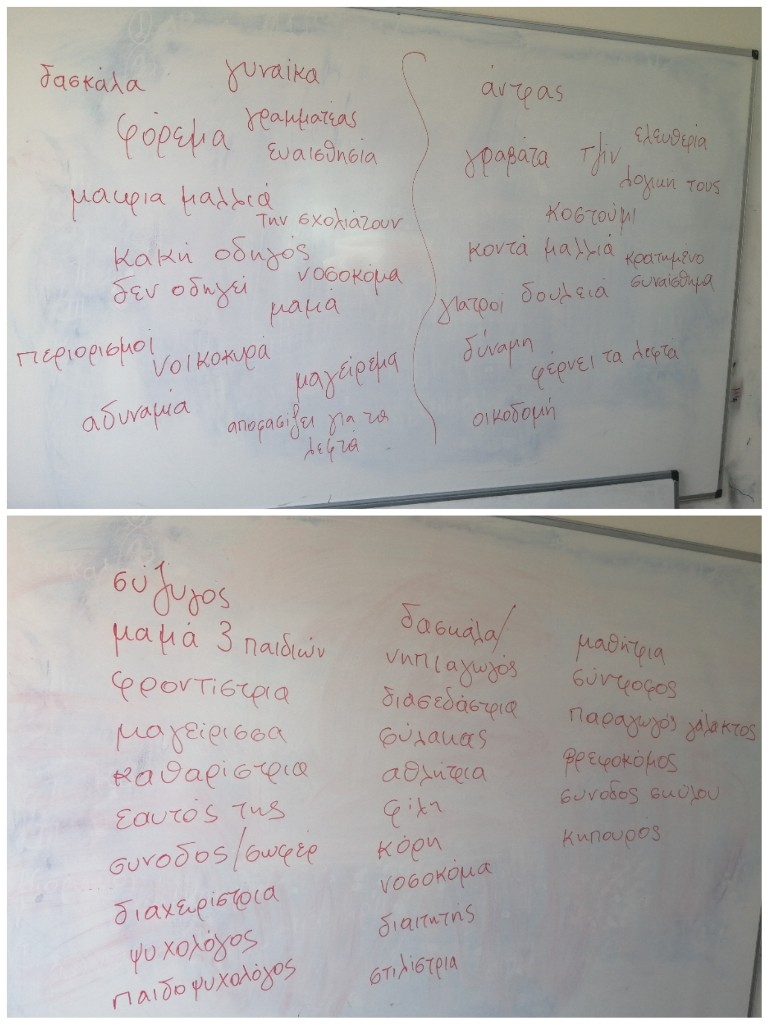 δασκάλα
γυναίκα
φόρεμα
γραμματέας
ευαισθησία
μακρια μαλλιά
την σχολιάζουν
κακή οδηγός
δεν οδηγεί
νοσοκόμα
μαμά
περιορισμοί
νοικοκυρά
μαγείρεμα
αδυναμία
αποφασίζει για τα
λεφτά
άντρας
γραβάτα
τζίν
ελευθερία
λογικη τους
κοστούμι
κοντά μαλλιά
κρατημενο
συναίσθημα
γιατροι
δουλειά
δύναμη
φέρνει τα λεφτά
οικοδομή
σύζυγος
μαμά 3 παιδιών
φροντίστρια
μαγείρισσα
καθαρίστρια
εαυτός της
συνοδος/σωφέρ
διαχειρίστρια
ψυχολόγος
παιδοψυχολόγος
δασκάλα/
νηπιαγωγός
διασεδάστρια
φύλακας
αθλήτρια
φίλη
κόρη
νοσοκόμα
διαιτητής
στιλίστρια
μαθήτρια
σύντροφος
παραγωγός γάλακτος
βρεφοκόμος
συνοδος σκύλου
κηπουρός